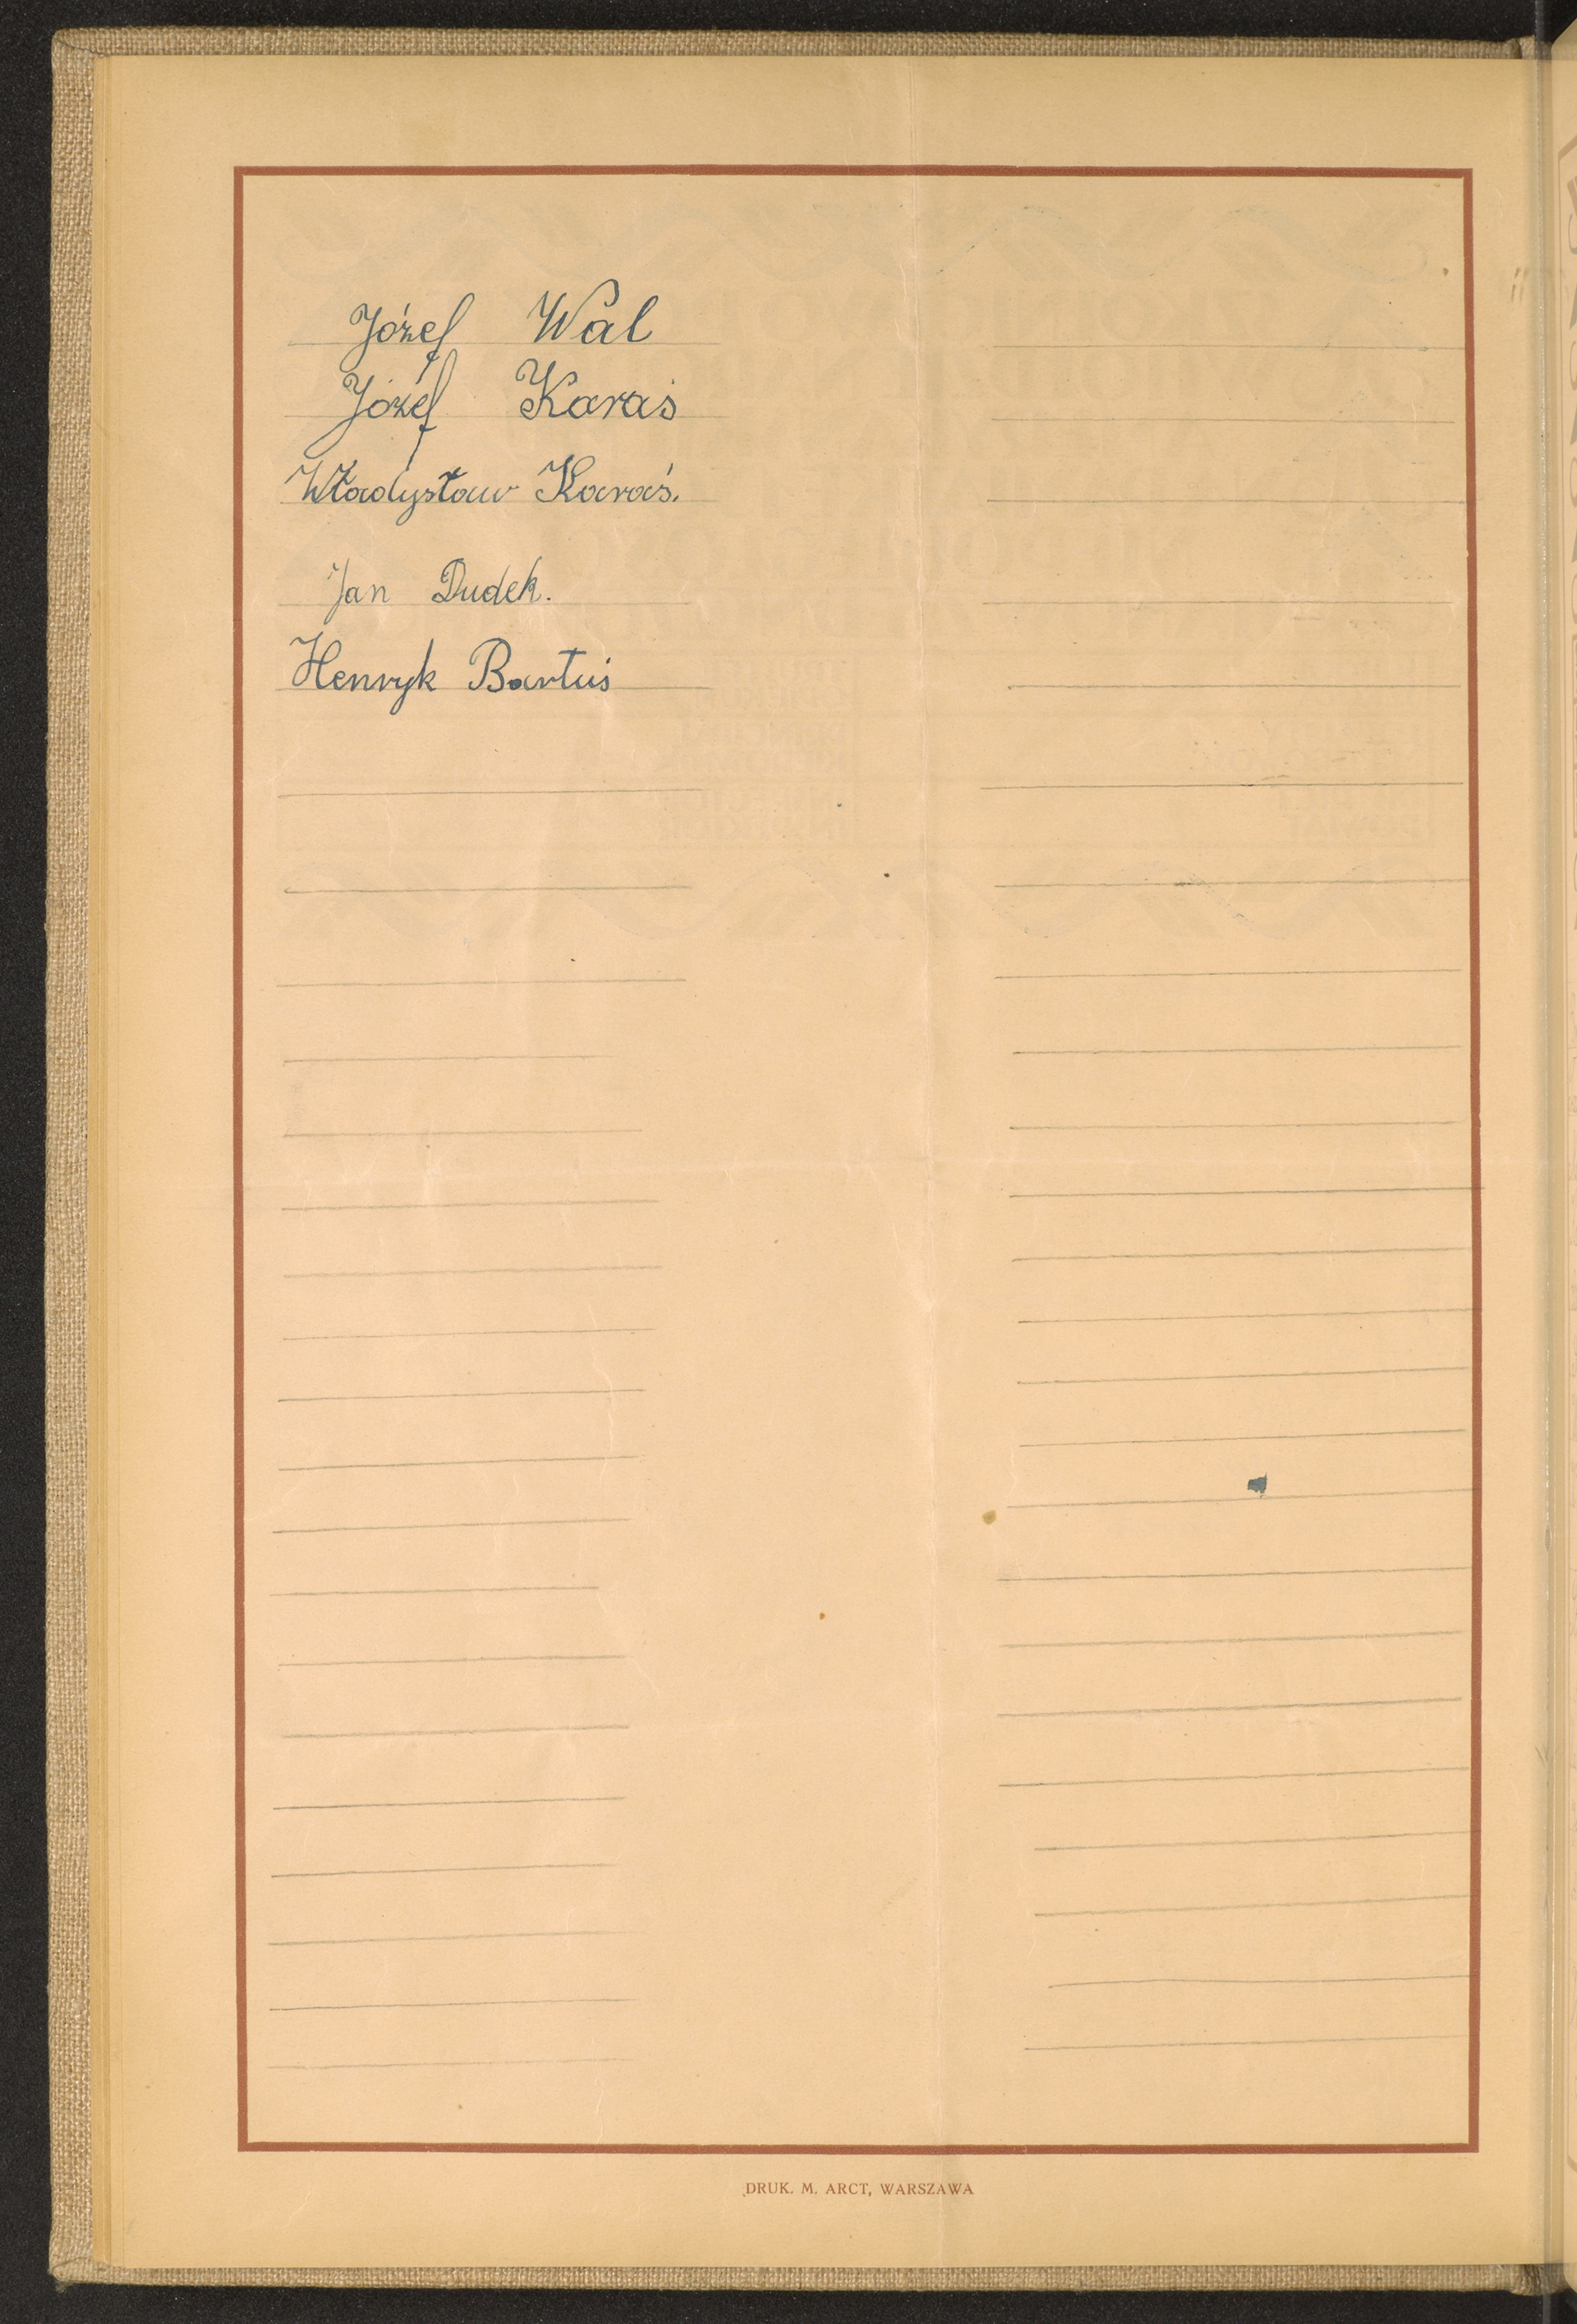 Józef Wal
Józef Karaś
Władysław Karaś.
Jan Dudek.
Henryk Bartuś
DRUK. M. ARCT, WARSZAWA